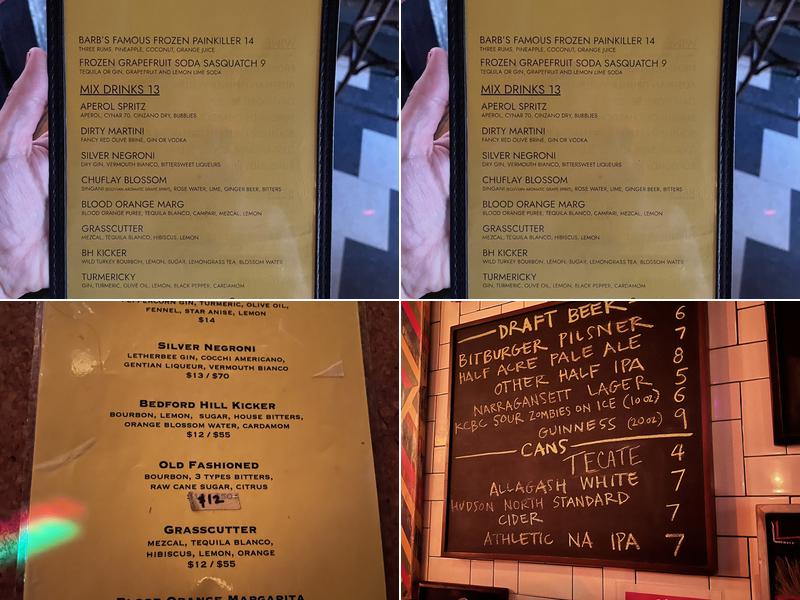 BARB'S FAMOUS FROZEN PAINKILLER 14
THREE RUMS, PINEAPPLE, COCONUT, ORANGE JUICE
FROZEN GRAPEFRUIT SODA SASQUATCH 9
TEQUILA OR GIN, GRAPEFRUIT AND LEMON LIME SODA
MIX DRINKS 13
APEROL SPRITZ
APEROL, CYNAR 70, CINZANO DRY, BUBBLIES
DIRTY MARTINI
FANCY RED OLIVE BRINE, GIN OR VODKA
SILVER NEGRONI
DRY GIN, VERMOUTH BIANCO, BITTERSWEET LIQUEURS
CHUFLAY BLOSSOM
SINGANI (BOLIVIAN AROMATIC GRAPE SPIRIT), ROSE WATER, LIME, GINGER BEER, BITTERS
BLOOD ORANGE MARG
BLOOD ORANGE PUREE, TEQUILA BLANCO, CAMPARI, MEZCAL, LEMON
GRASSCUTTER
MEZCAL, TEQUILA BLANCO, HIBISCUS, LEMON
BH KICKER
WILD TURKEY BOURBON, LEMON, SUGAR, LEMONGRASS TEA, BLOSSOM WATER
TURMERICKY
GIN, TURMERIC, OLIVE OIL, LEMON, BLACK PEPPER, CARDAMOM
BARB'S FAMOUS FROZEN PAINKILLER 14
THREE RUMS, PINEAPPLE, COCONUT, ORANGE JUICE
FROZEN GRAPEFRUIT SODA SASQUATCH 9
TEQUILA OR GIN, GRAPEFRUIT AND LEMON LIME SODA
MIX DRINKS 13
APEROL SPRITZ
APEROL, CYNAR 70, CINZANO DRY, BUBBLIES
DIRTY MARTINI
FANCY RED OLIVE BRINE, GIN OR VODKA
SILVER NEGRONI
DRY GIN, VERMOUTH BIANCO, BITTERSWEET LIQUEURS
CHUFLAY BLOSSOM
SINGANI (BOLIVIAN AROMATIC GRAPE SPIRIT), ROSE WATER, LIME, GINGER BEER, BITTERS
BLOOD ORANGE MARG
BLOOD ORANGE PUREE, TEQUILA BLANCO, CAMPARI, MEZCAL, LEMON
GRASSCUTTER
MEZCAL, TEQUILA BLANCO, HIBISCUS, LEMON
BH KICKER
WILD TURKEY BOURBON, LEMON, SUGAR, LEMONGRASS TEA, BLOSSOM WATER
TURMERICKY
GIN, TURMERIC, OLIVE OIL, LEMON, BLACK PEPPER, CARDAMOM
PEPPERCORN GIN, TURMERIC, OLIVE OIL,
FENNEL, STAR ANISE, LEMON
$14
SILVER NEGRONI
LETHERBEE GIN, COCCHI AMERICANO,
GENTIAN LIQUEUR, VERMOUTH BIANCO
$13 / $70
BEDFORD HILL KICKER
BOURBON, LEMON, SUGAR, HOUSE BITTERS,
ORANGE BLOSSOM WATER, CARDAMOM
$12 / $55
OLD FASHIONED
BOURBON, 3 TYPES BITTERS,
RAW CANE SUGAR, CITRUS
$12
GRASSCUTTER
MEZCAL, TEQUILA BLANCO,
HIBISCUS, LEMON, ORANGE
$12 / $55
BLOOD ORANGE MARGARITA
DRAFT BEER
BITBURGER PILSNER 6
HALF ACRE PALE ALE 7
OTHER HALF IPA 8
NARRAGANSETT LAGER 5
KCBC SOUR ZOMBIES ON ICE (10 oz) 6
GUINNESS (20 oz) 9
CANS
TECATE 4
ALLAGASH WHITE 7
HUDSON NORTH STANDARD
CIDER 7
ATHLETIC NA IPA 7